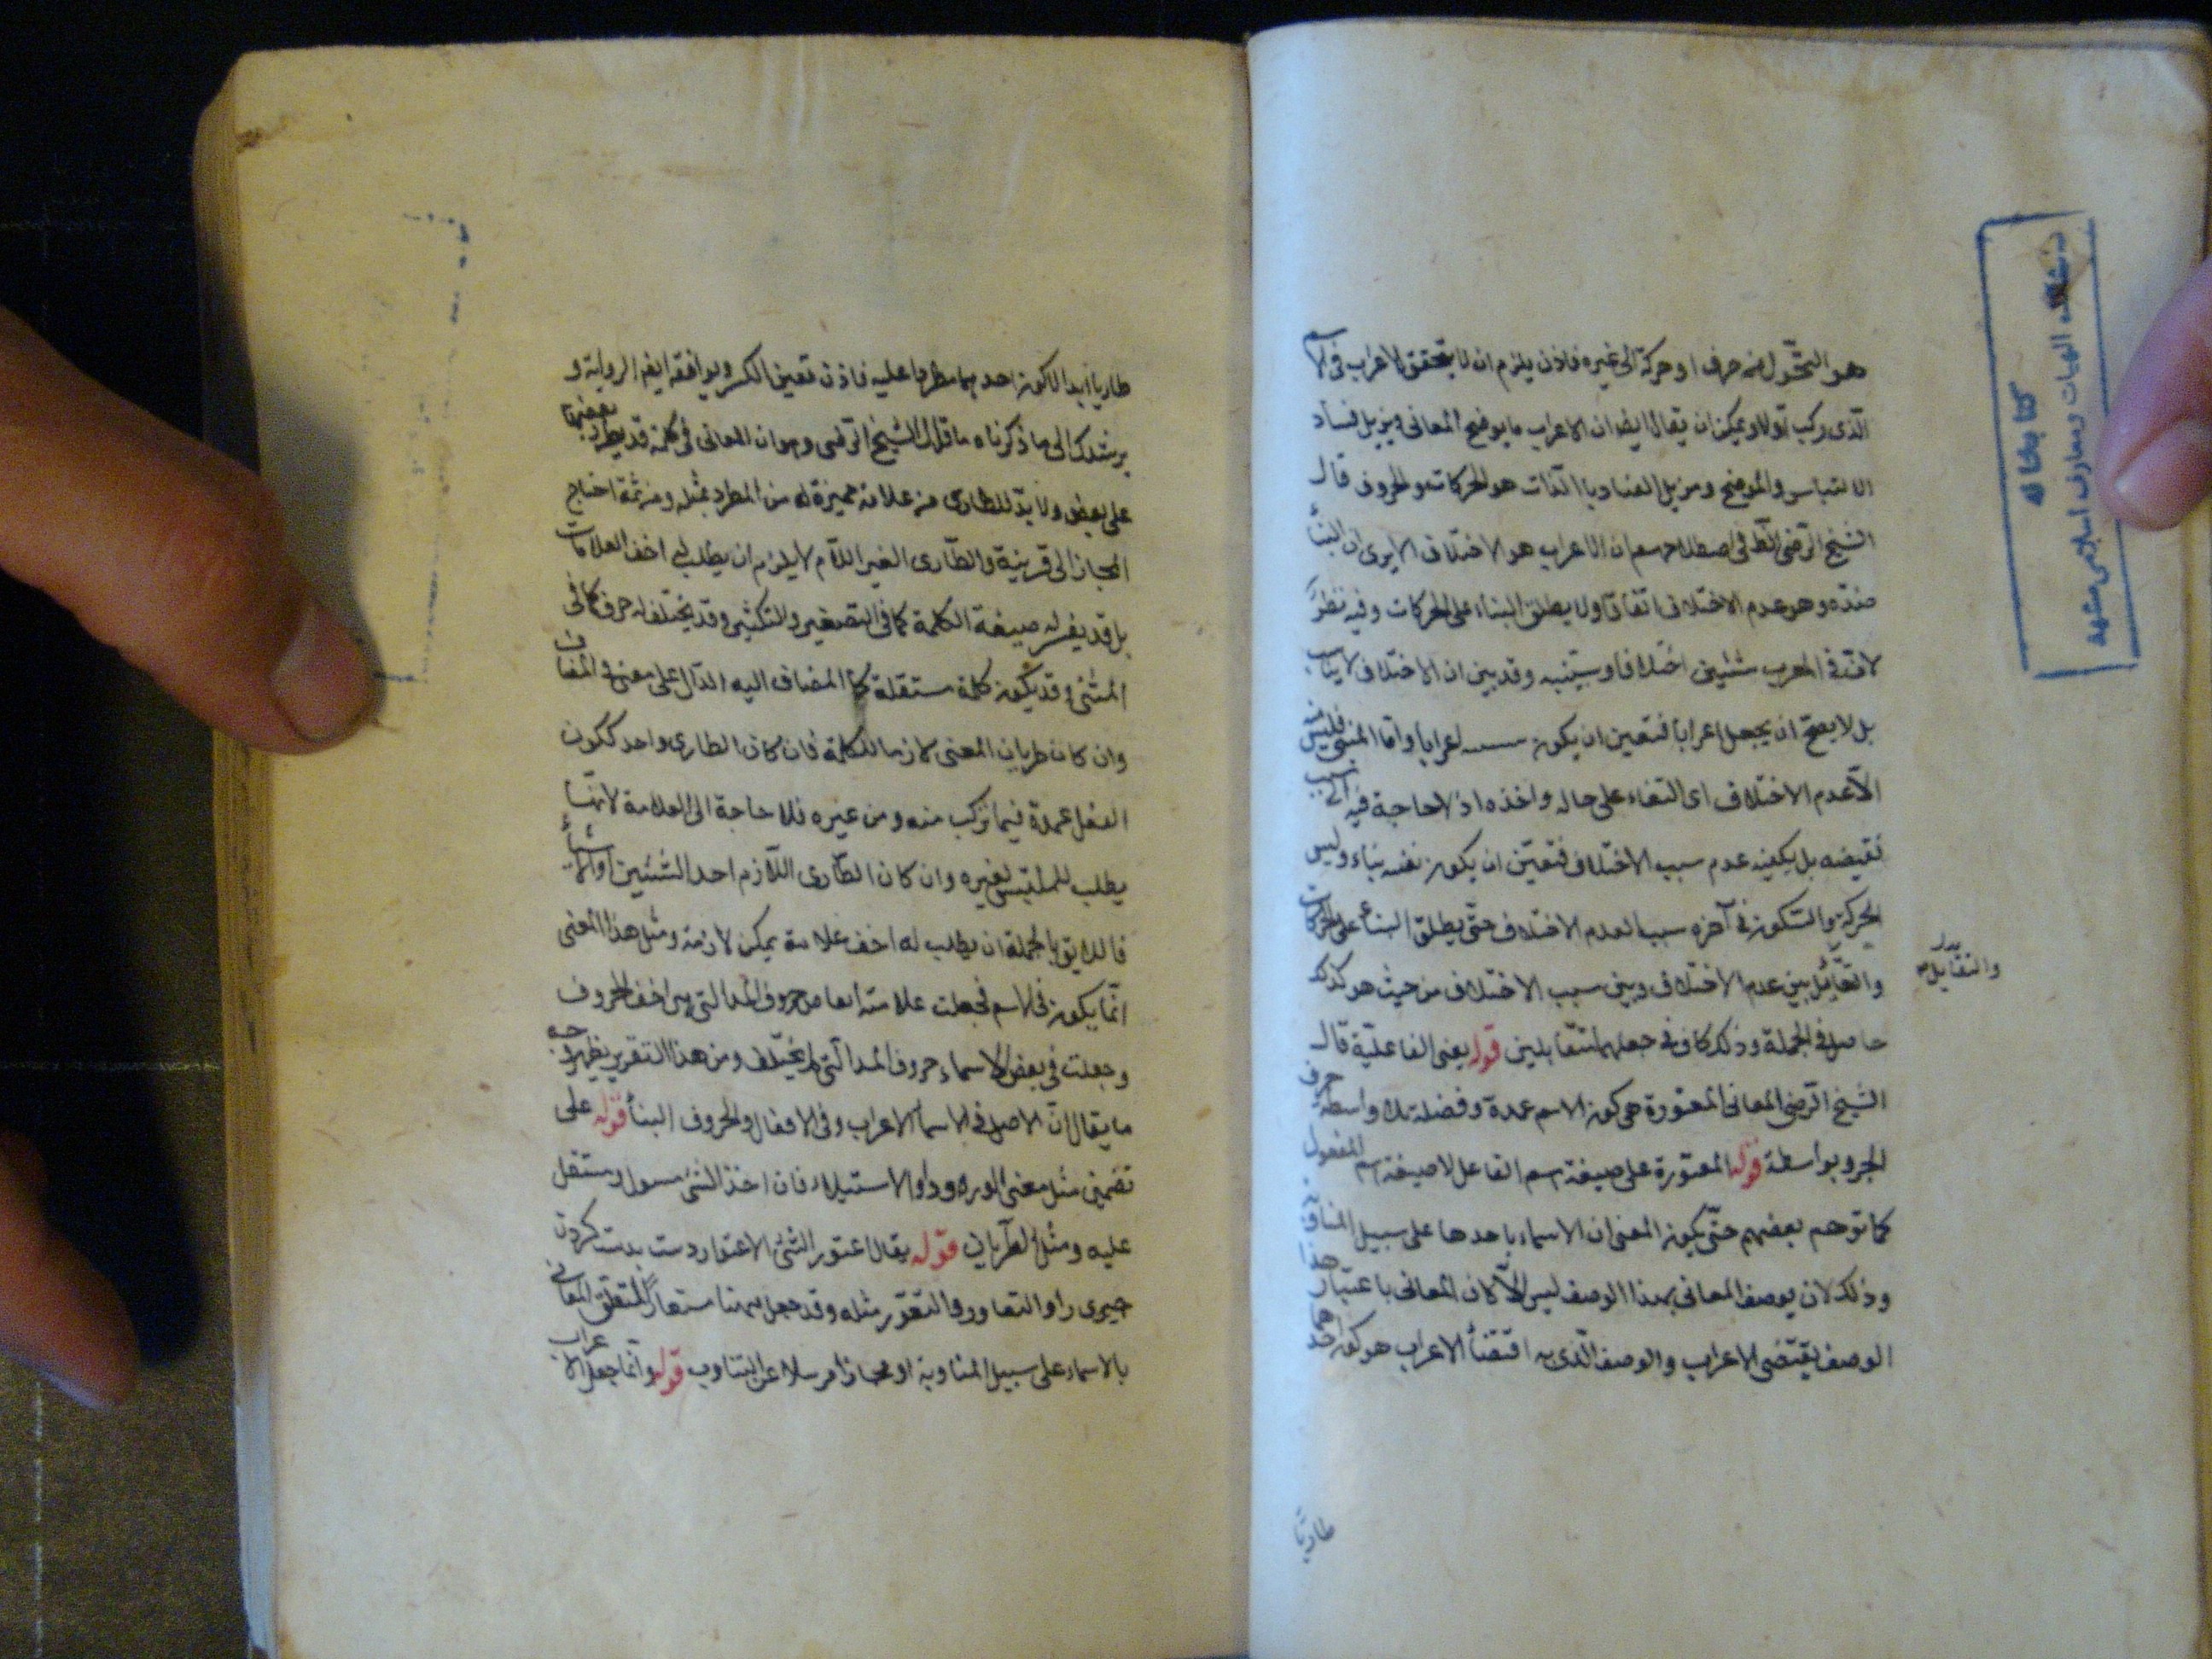 هو التحول من حرف او حركة الى غيره فاذن يلزم ان لا يتحقق الاعراب فى الاسم
الذى ركب اولا ويمكن ان يقال ايضا ان الاعراب ما يوضح المعانى ويزيل فساد
الالتباس والموضح ومزيل الفساد بالذات هو الحركات والحروف قال
الشيخ الرضى الظ فى اصطلاحهم ان الاعراب هو الاختلاف الا يرى ان البناء
ضده وهو عدم الاختلاف اتفاقا ولا يطلق البناء على الحركات وفيه نظر
لان فى المعرب شيئين اختلافا وسببه وقد بين ان الاختلاف لا يناسب
بل لا يصح ان يجعل اعرابا فتعين ان يكون اعرابا واما المبنى فليس فيه
الا عدم الاختلاف اى البقاء على حاله واخذه اذ لا حاجة فيه الى سبب
نقيضه بل يكفيه عدم سبب الاختلاف فتعين ان يكون نفسه بناء وليس
الحركة والسكون فى آخره سببا لعدم الاختلاف حتى يطلق البناء على الحركات
والتقابل بين عدم الاختلاف وبين سبب الاختلاف من حيث هو كذلك
والتقابل
حاصل فى الجملة وذلك كاف فى جعلهما متقابلين قوله يعنى الفاعلية قال
الشيخ الرضى المعانى المعتورة هى كون الاسم عمدة وفضلة بلا واسطة حرف
الجر وبواسطة قوله المعتورة على صيغة اسم الفاعل لا صيغة اسم المفعول
كما توهم بعضهم حتى يكون المعنى ان الاسماء ياخذها على سبيل المناوبة
وذلك لان يوصف المعانى بهذا الوصف ليس الا لان المعانى باعتبار هذا
الوصف يقتضى الاعراب والوصف الذى به اقتضاء الاعراب هو كون احدهما
طاريا
طاريا ابدا لا كون احدهما مطروا عليه فاذن تعين الكسر ويوافقه ايضا الرواية و
يرشدك الى ما ذكرناه ما قال الشيخ الرضى وهو ان المعانى فى كلمة قد يطرء بعضها
على بعض ولا بد للطارى من علامة مميزة له من المطرء عليه ومن ثمة احتاج
المجاز الى قرينة والطارى الغير اللازم لا يلزم ان يطلب له اخف العلامات
بل قد يغير له صيغة الكلمة كما فى التصغير والتكسير وقد يختلف له حرف كما فى
المثنى وقد يكون كلمة مستقلة كالمضاف اليه الدال على معنى فى المضاف
وان كان طريان المعنى لازما للكلمة فان كان الطارى واحد ككون
الفعل عمدة فيما تركب منه ومن غيره فلا حاجة الى العلامة لانها
يطلب للملتبس بغيره وان كان الطارى اللازم احد الشيئين او الاشياء
فاللايق بالحكمة ان يطلب له اخف علامة يمكن لازمة ومثل هذا المعنى
انما يكون فى الاسم فجعلت علامته ابعاض حروف المد التى هى اخف الحروف
وجعلت فى بعض الاسماء حروف المد التى لم يختلف ومن هذا التقرير يظهر وجه
ما يقال ان الاصل فى الاسماء الاعراب وفى الافعال والحروف البناء قوله على
تضمين مثل معنى الورود والاستيلاء فان اخذ الشئ مستول ومستقل
عليه ومثل الطريان قوله يقال اعتور الشئ الاعتوار دست بدست كردن
چيزى را والتعاور والتعور مثله وقد جعل ههنا مستعارا لتعلق المعانى
بالاسماء على سبيل المناوبة او مجازا مرسلا عن التناوب قوله وانما جعل الاعراب
كتابخانه
دانشكده الهيات و معارف اسلامى مشهد